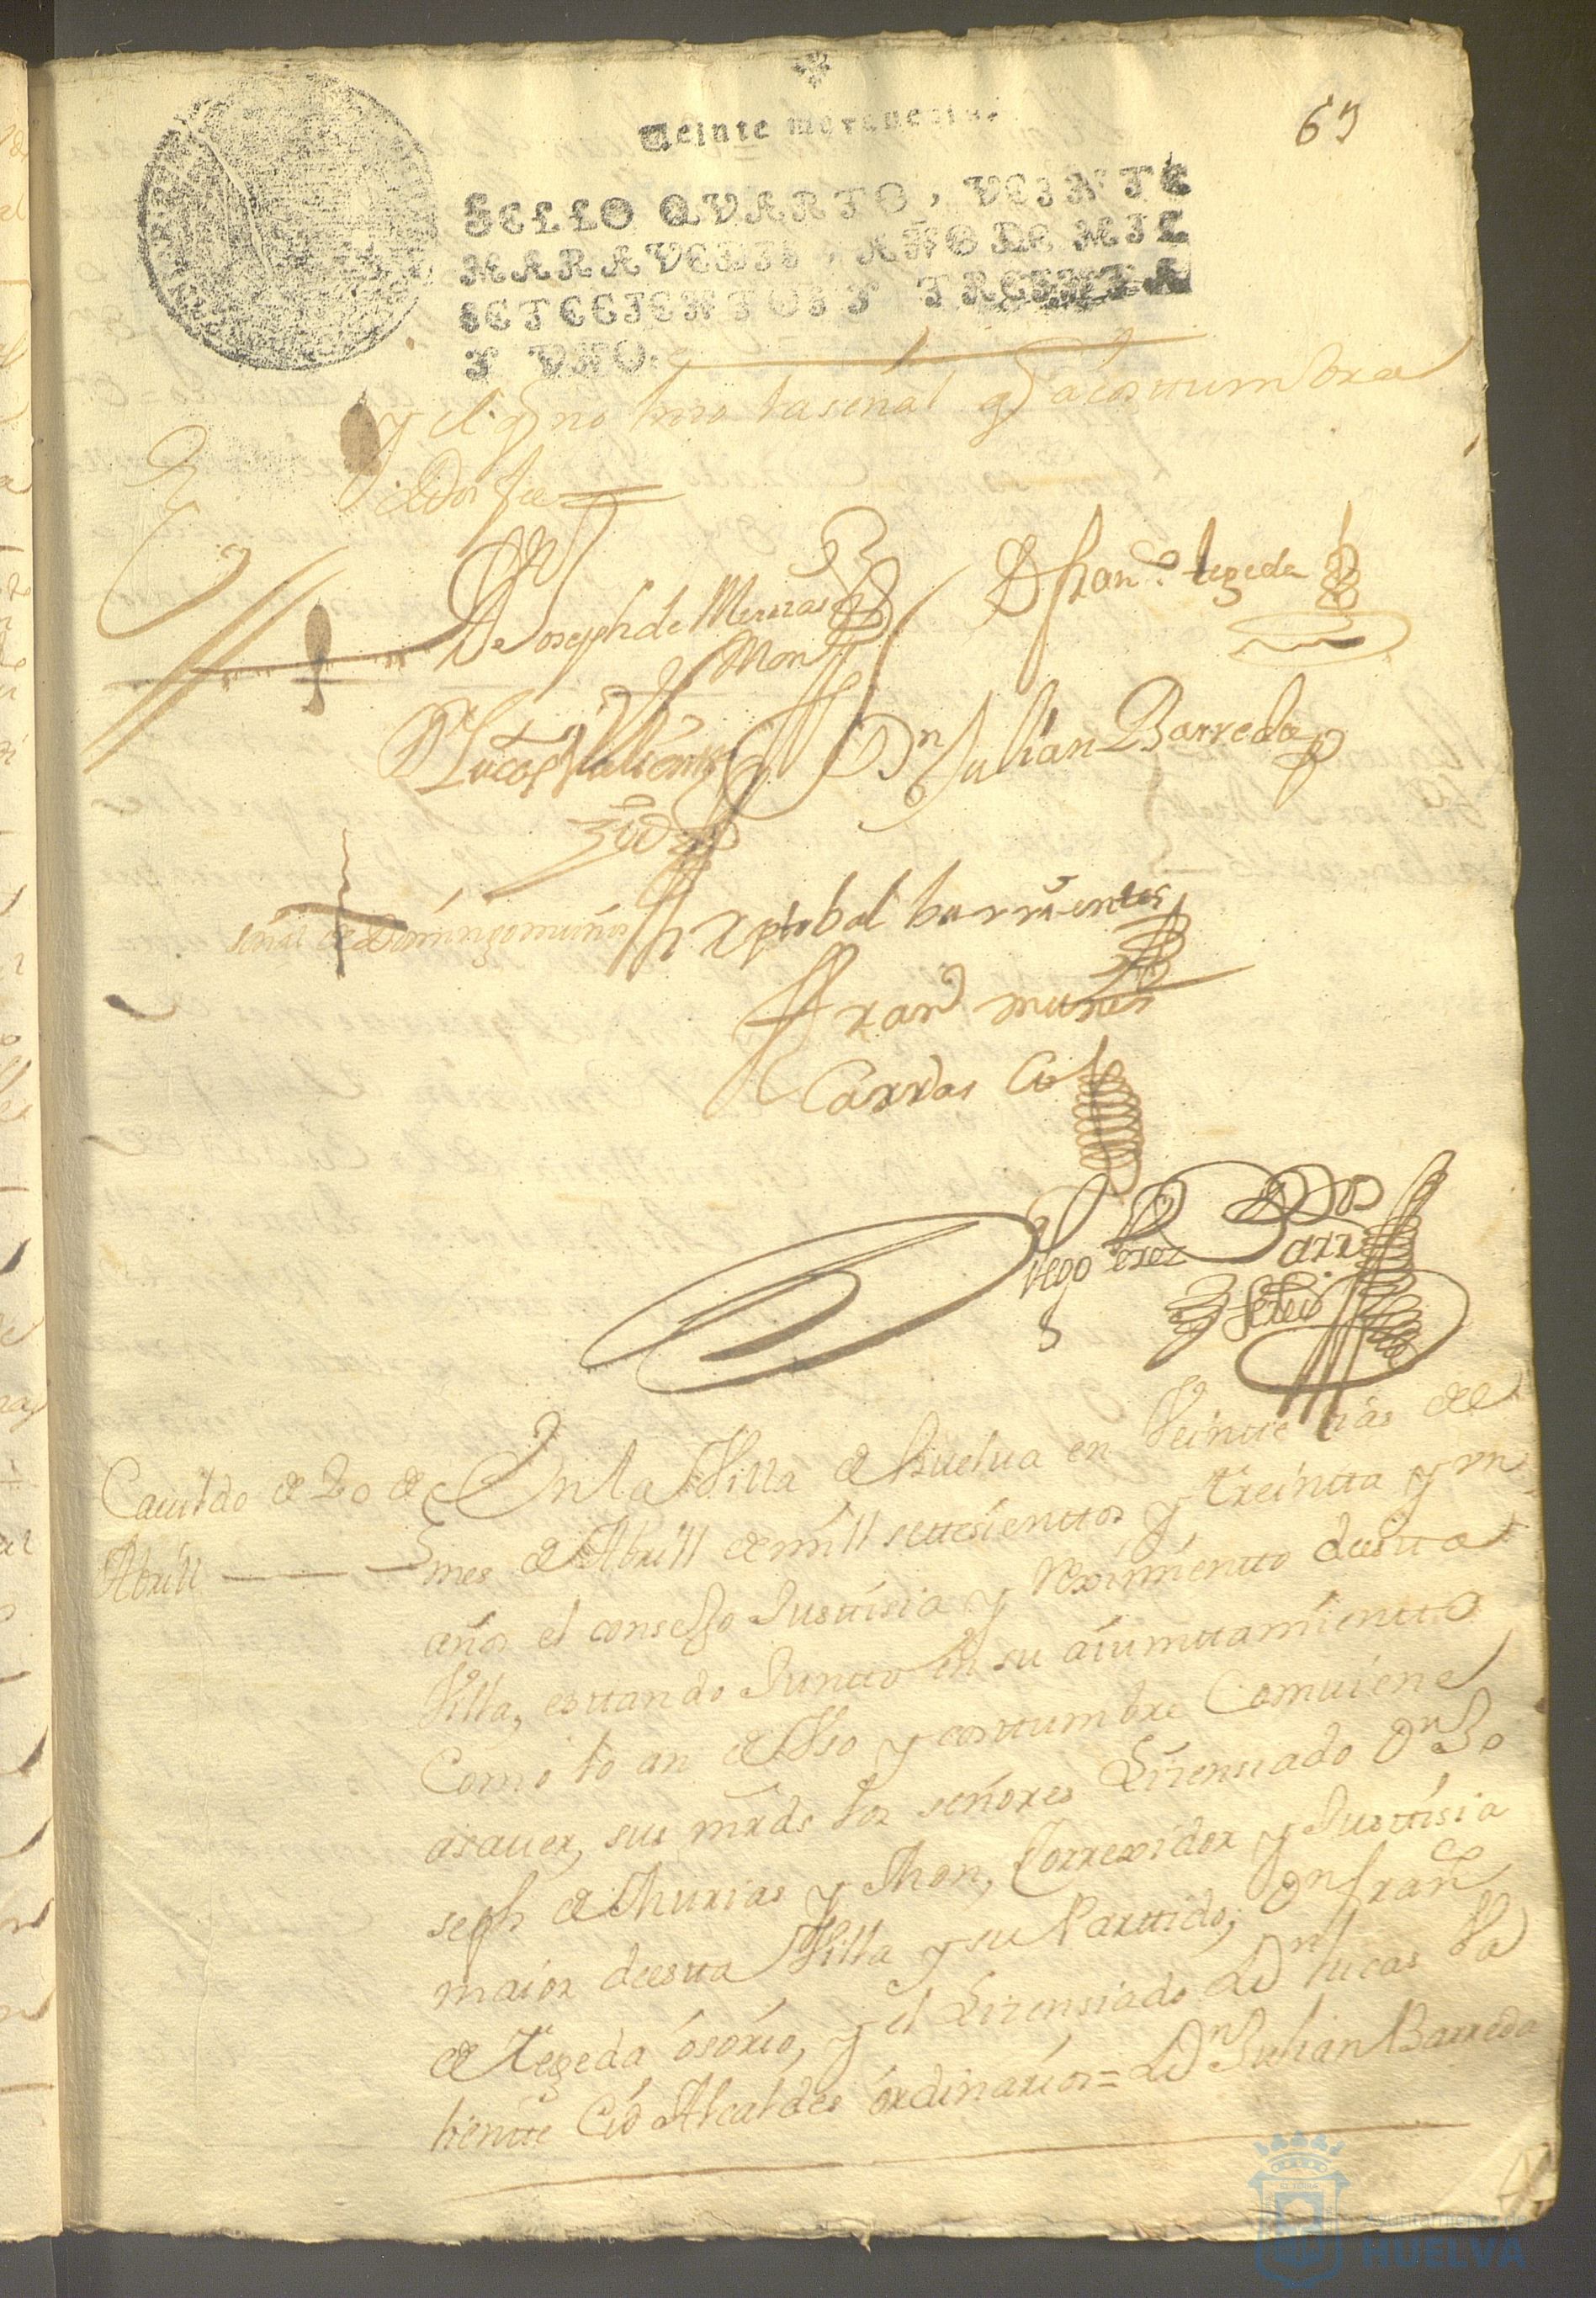 Veinte maravedis.
69
SELLO QVARTO, VEINTE
MARAVEDIS, AÑO DE MIL
SETECIENTOS Y TREINTA
Y UNO.
y el q no hizo la señal q acosttumbra
de Doi fee
Joseph de Murias
y Mon
D fran.co tegeda
D Lucas Valiente
Zid
Dn Julian Barreda
señal de Domingo muños
Xptobal barrientos
Fran.co muñes
Carrasco
Diego Perez Barr
Cauildo de 20 de
Abrill
En la Villa de Huelua en Veinte dias de
mes de Abrill de mill settesienttos y treintta y un
años el consejo Justtisia y reximientto de estta
Villa, esttando Juntto en su aiunttamientto
Como lo an de Vso y costtumbre Comuiene
asauer, sus mrds los señores Lizensiado Dn Jo
seph de Murias y Mon, Correxidor y Justtisia
maior de estta Villa y su Parttido; Dn fran.co
de Tegeda osorio, y el Lizensiado Dn lucas Va
liente Cid Alcaldes ordinarios = Dn Julian Barreda
Ayuntamiento de
HUELVA